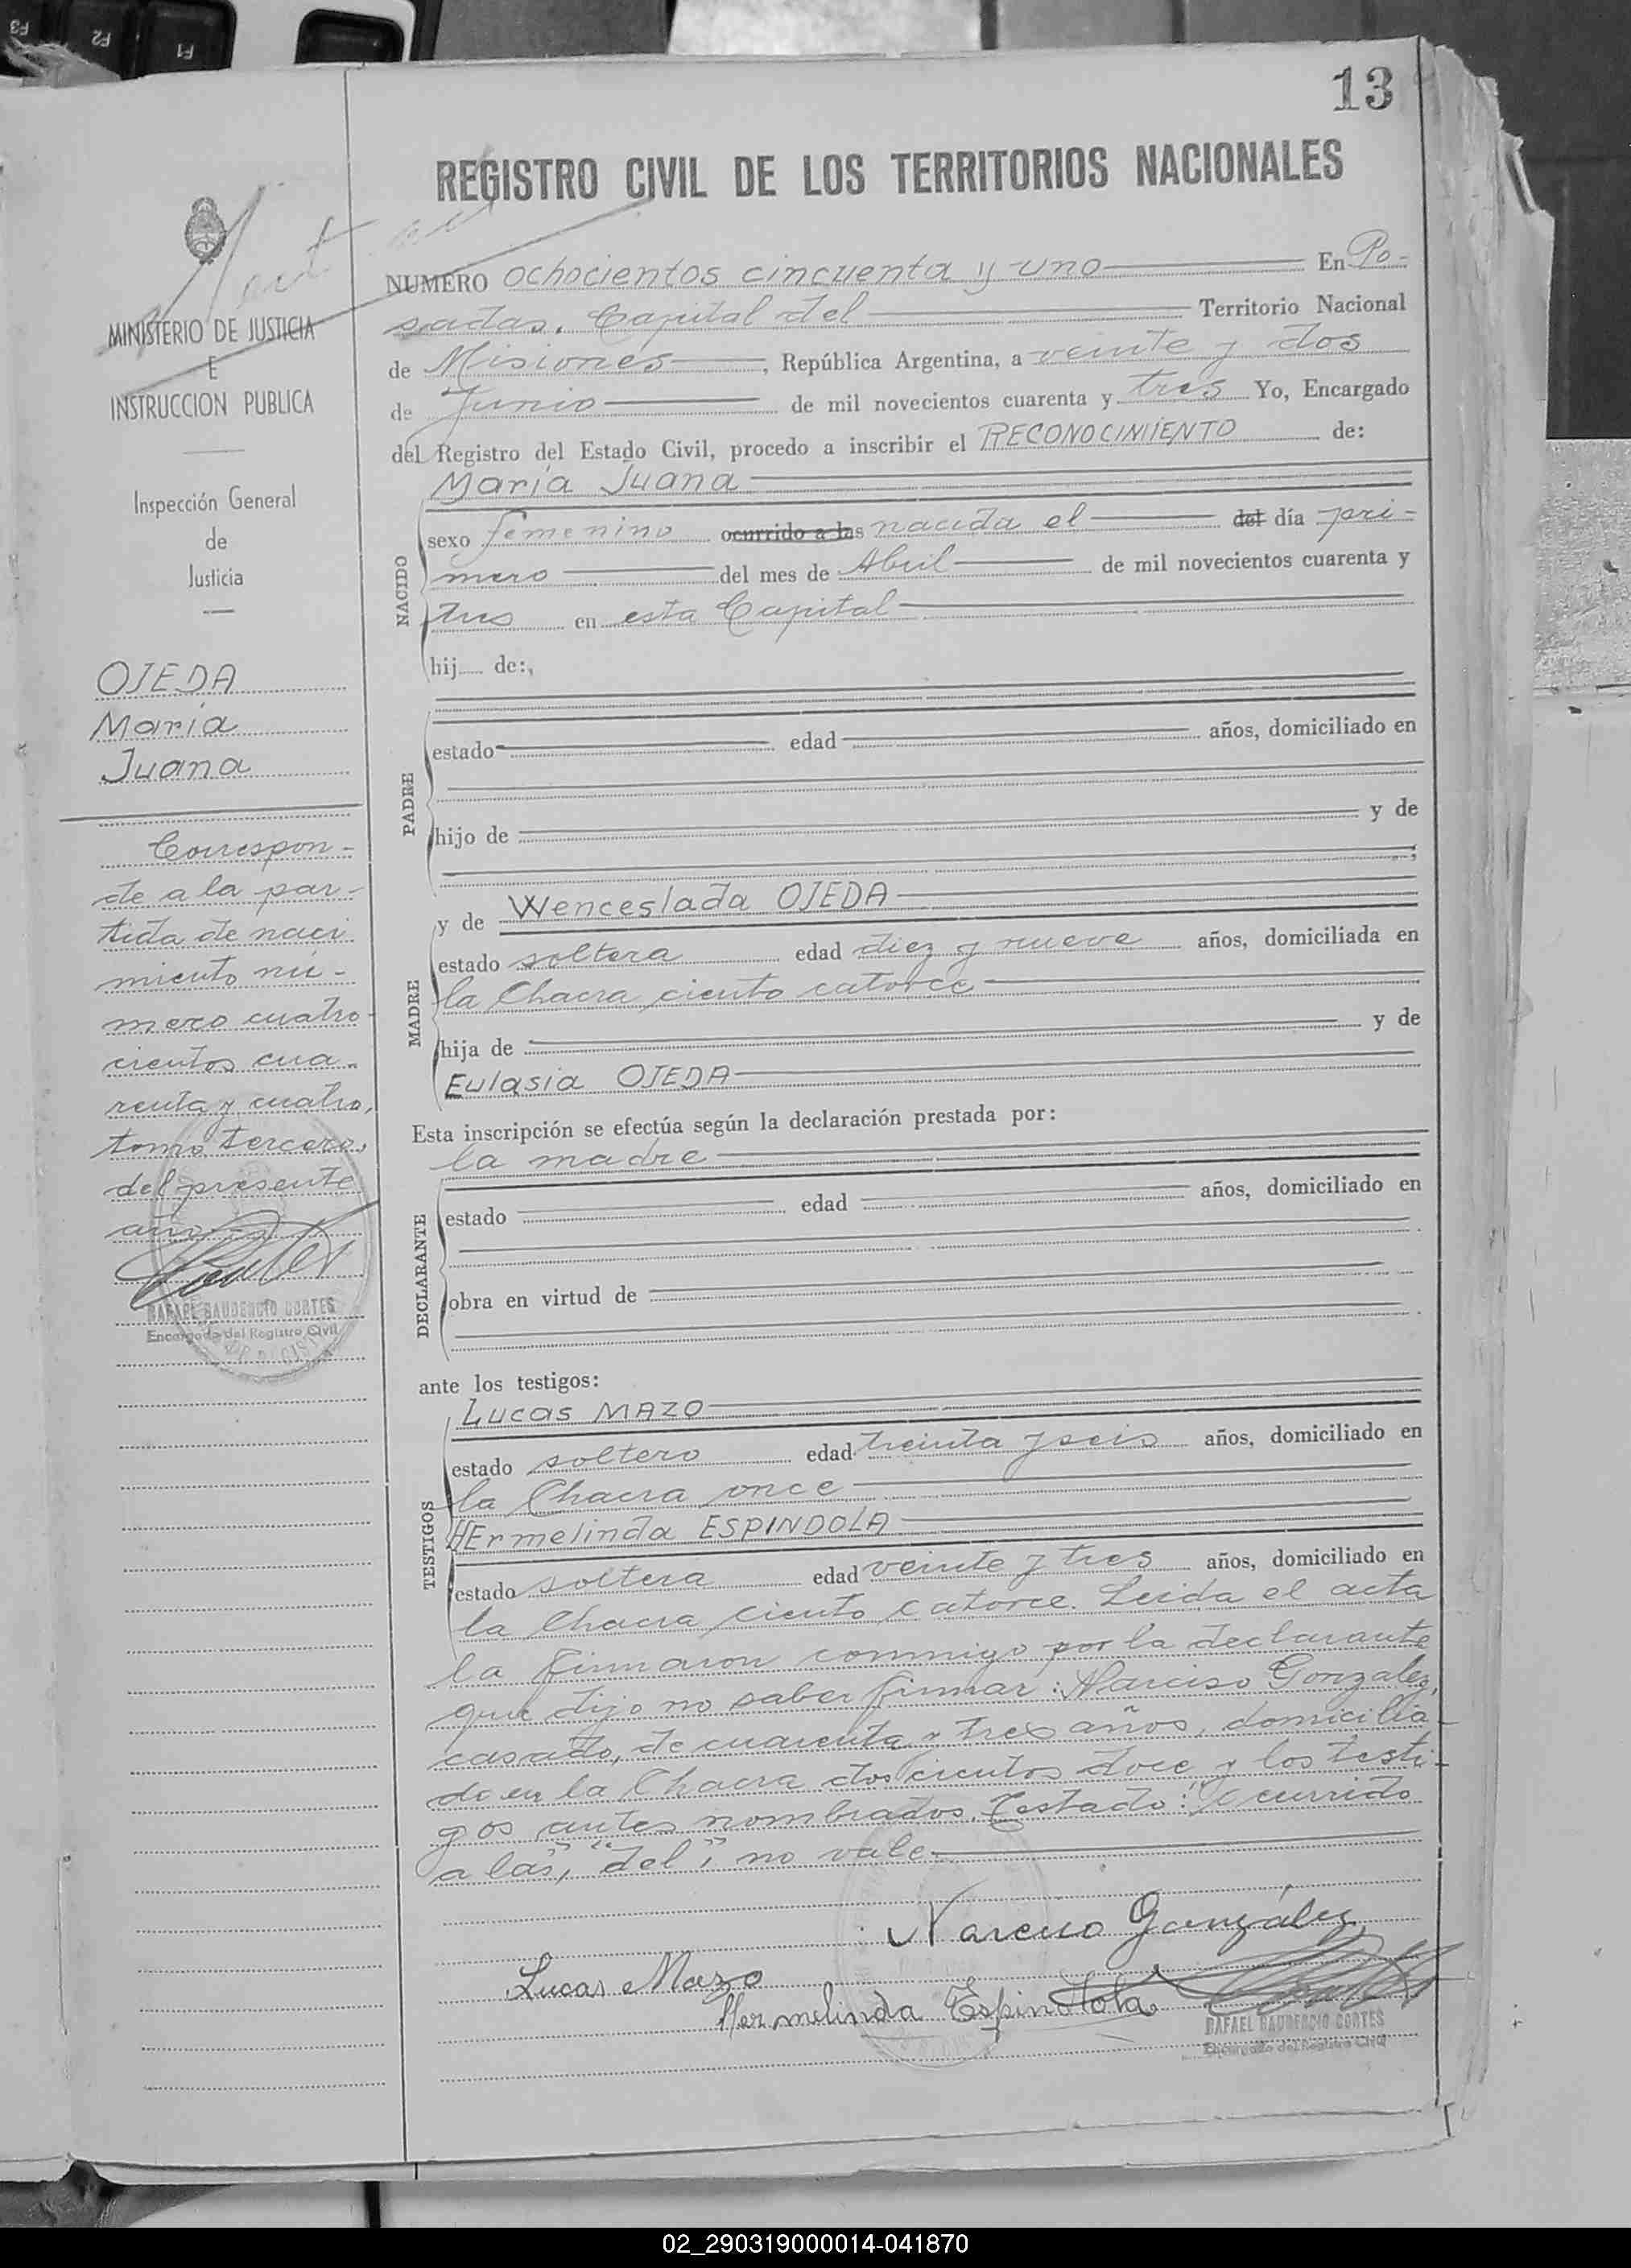 F3
F2
F1
13
REGISTRO CIVIL DE LOS TERRITORIOS NACIONALES
MINISTERIO DE JUSTICIA
E
INSTRUCCION PUBLICA
Inspección General
de
Justicia
OJEDA
María
Juana
Correspon-
de a la par-
tida de naci
miento nú-
mero cuatro-
cientos cua-
renta y cuatro,
tomo tercero,
del presente
año.
RAFAEL GAUDENCIO CORTES
Encargado del Registro Civil
NUMERO ochocientos cincuenta y uno En Po-
sadas, Capital del Territorio Nacional
de Misiones, República Argentina, a veinte y dos
de Junio de mil novecientos cuarenta y tres Yo, Encargado
del Registro del Estado Civil, procedo a inscribir el RECONOCIMIENTO de:
María Juana
NACIDO
sexo femenino ocurrido a las nacida el del día pri-
mero del mes de Abril de mil novecientos cuarenta y
tres en esta Capital
hij de:,
PADRE
estado edad años, domiciliado en
hijo de y de
;
MADRE
y de Wenceslada OJEDA
estado soltera edad diez y nueve años, domiciliada en
la Chacra ciento catorce
hija de y de
Eulasia OJEDA
Esta inscripción se efectúa según la declaración prestada por:
la madre
DECLARANTE
estado edad años, domiciliado en
obra en virtud de
ante los testigos:
TESTIGOS
Lucas MAZO
estado soltero edad treinta y seis años, domiciliado en
la Chacra once
HErmelinda ESPINDOLA
estado soltera edad veinte y tres años, domiciliado en
la Chacra ciento catorce. Leida el acta
la firmaron conmigo por la declarante
que dijo no saber firmar: Narciso Gonzalez,
casado, de cuarenta y tres años, domicilia-
do en la Chacra doscientos doce y los testi-
gos antes nombrados. Testado: "Ocurrido
a las", "del", no vale.
Narciso González
Lucas Mazo
Hermelinda Espindola
RAFAEL GAUDENCIO CORTES
Encargado del Registro Civil
02_290319000014-041870